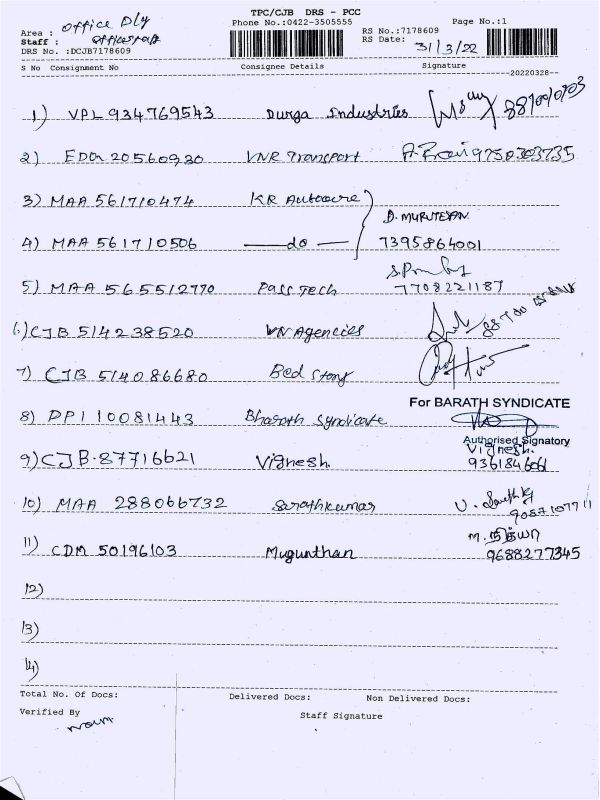 TPC/CJB DRS - PCC
Area : Office Dly Phone No.:0422-3505555 Page No.:1
Staff : RS No.:7178609
DRS No. :DCJB7178609 RS Date: 31/3/22
S No Consignment No Consignee Details Signature
--20220328--
1) VPL 934769543 Durga Industries
2) EDA 20560930 VNR Transport 9750303735
3) MAA 561710474 KR Autocare
D. MURUTESAN
4) MAA 561710506 — do — 7395864001
5) MAA 565512770 Pass Tech 7708221187
6) CJB 514238520 VN Agencies
7) CJB 514086680 Bed Story
For BARATH SYNDICATE
8) DPI 10081443 Bharath Syndicate
Authorised Signatory
9) CJB-87716621 Vignesh. Vignesh.
936184606
10) MAA 288066732 Sarathkumar
11) CDM 50196103 Mugunthan m. நித்யா
9688277345
12)
13)
14)
Total No. Of Docs: Delivered Docs: Non Delivered Docs:
Verified By Staff Signature